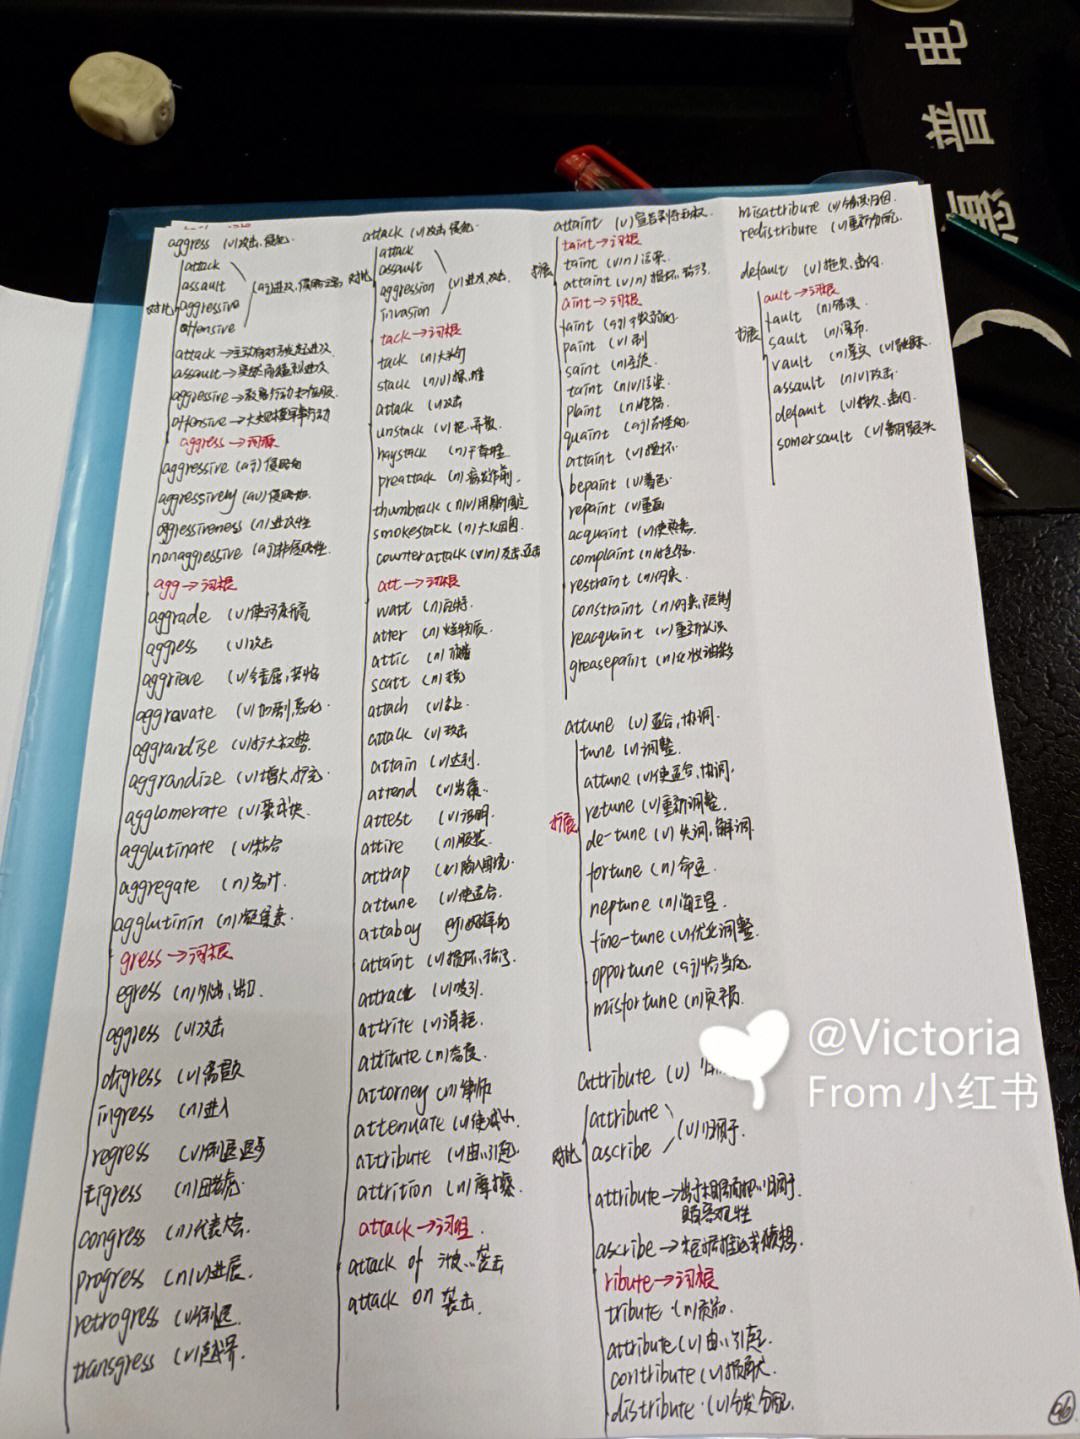 aggress (v)攻击,侵犯
对比
attack
assault
aggressive
offensive
(aj)进攻,侵略
attack→主动向对方发起进攻
assault→突然而猛烈进攻
aggressive→
offensive→大规模军事行动
aggress→词源
aggressive (aj)侵略的
aggressively (av)侵略地.
aggressiveness (n)进攻性
nonaggressive (aj)非侵略性.
agg→词根
aggrade (v)使河床升高
aggress (v)攻击
aggrieve (v)令委屈,苦恼
aggravate (v)加剧,恶化.
aggrandise (v)扩大权势.
aggrandize (v)增大,扩充.
agglomerate (v)聚成块.
agglutinate (v)粘合
aggregate (n)总计.
agglutinin (n)凝集素.
gress→词根
egress (n)外出,出口.
aggress (v)攻击
digress (v)离题
ingress (n)进入
regress (v)倒退退步
tigress (n)母老虎.
congress (n)代表大会.
progress (n/v)进展.
retrogress (v)倒退.
transgress (v)越界.
attack (v)攻击,侵犯.
对比
attack
assault
aggression
invasion
(v)进攻,攻击.
tack→词根
tack (n)大头钉
stack (n/v)垛,堆
attack (v)攻击
unstack (v)把..弄散.
haystack (n)干草堆
preattack (n)病发作前.
thumbtack (n/v)用图钉固定
smokestack (n)大烟囱
counterattack (v/n)反击,还击
att→词根
watt (n)瓦特.
atter (n)
attic (n)顶楼
scatt (n)税
attach (v)系上.
attack (v)攻击
attain (v)达到.
attend (v)出席.
attest (v)证明.
attire (n)服装.
attrap (v)陷入困境.
attune (v)使适合.
attaboy
attaint (v)损坏,玷污.
attract (v)吸引.
attrite (v)消耗.
attitute (n)态度.
attorney (n)律师
attenuate (v)使减小.
attribute (v)由..引起.
attrition (n)摩擦.
attack→词组.
attack of 被...袭击
attack on 袭击.
attaint (v)宣告剥夺私权.
扩展
taint→词根
taint (v/n)污染.
attaint (v/n)损坏,玷污.
aint→词根
faint (aj)微弱的.
paint (v)刷
saint (n)圣徒.
taint (n/v)污染.
plaint (n)抱怨.
quaint (aj)古怪的.
attaint (v)损坏.
bepaint (v)着色.
repaint (v)重画
acquaint (v)使熟悉.
complaint (n)抱怨.
restraint (n)约束.
constraint (n)约束,限制
reacquaint (v)重新认识
greasepaint (n)化妆油彩
attune (v)适合,协调.
扩展
tune (v)调整.
attune (v)使适合,协调.
retune (v)重新调整.
de-tune (v)失调,解调.
fortune (n)命运.
neptune (n)海王星.
fine-tune (v)优化调整.
opportune (aj)恰当的.
misfortune (n)灾祸.
attribute (v)
对比
attribute
ascribe
(v)归属于.
attribute→出于相信而把..归属于.
ascribe→根据推论或猜想.
ribute→词根
tribute (n)贡物.
attribute (v)由..引起.
contribute (v)捐献.
distribute (v)分发分配.
misattribute (v)错误归因
redistribute (v)重新分配.
default (v)拖欠,违约.
扩展
ault→词根
fault (n)错误.
sault (n)瀑布.
vault (n)墓穴 (v)跳跃.
assault (n/v)攻击.
default (v)拖欠,违约.
somersault (v)翻跟头
96
惠普电
@Victoria
From 小红书